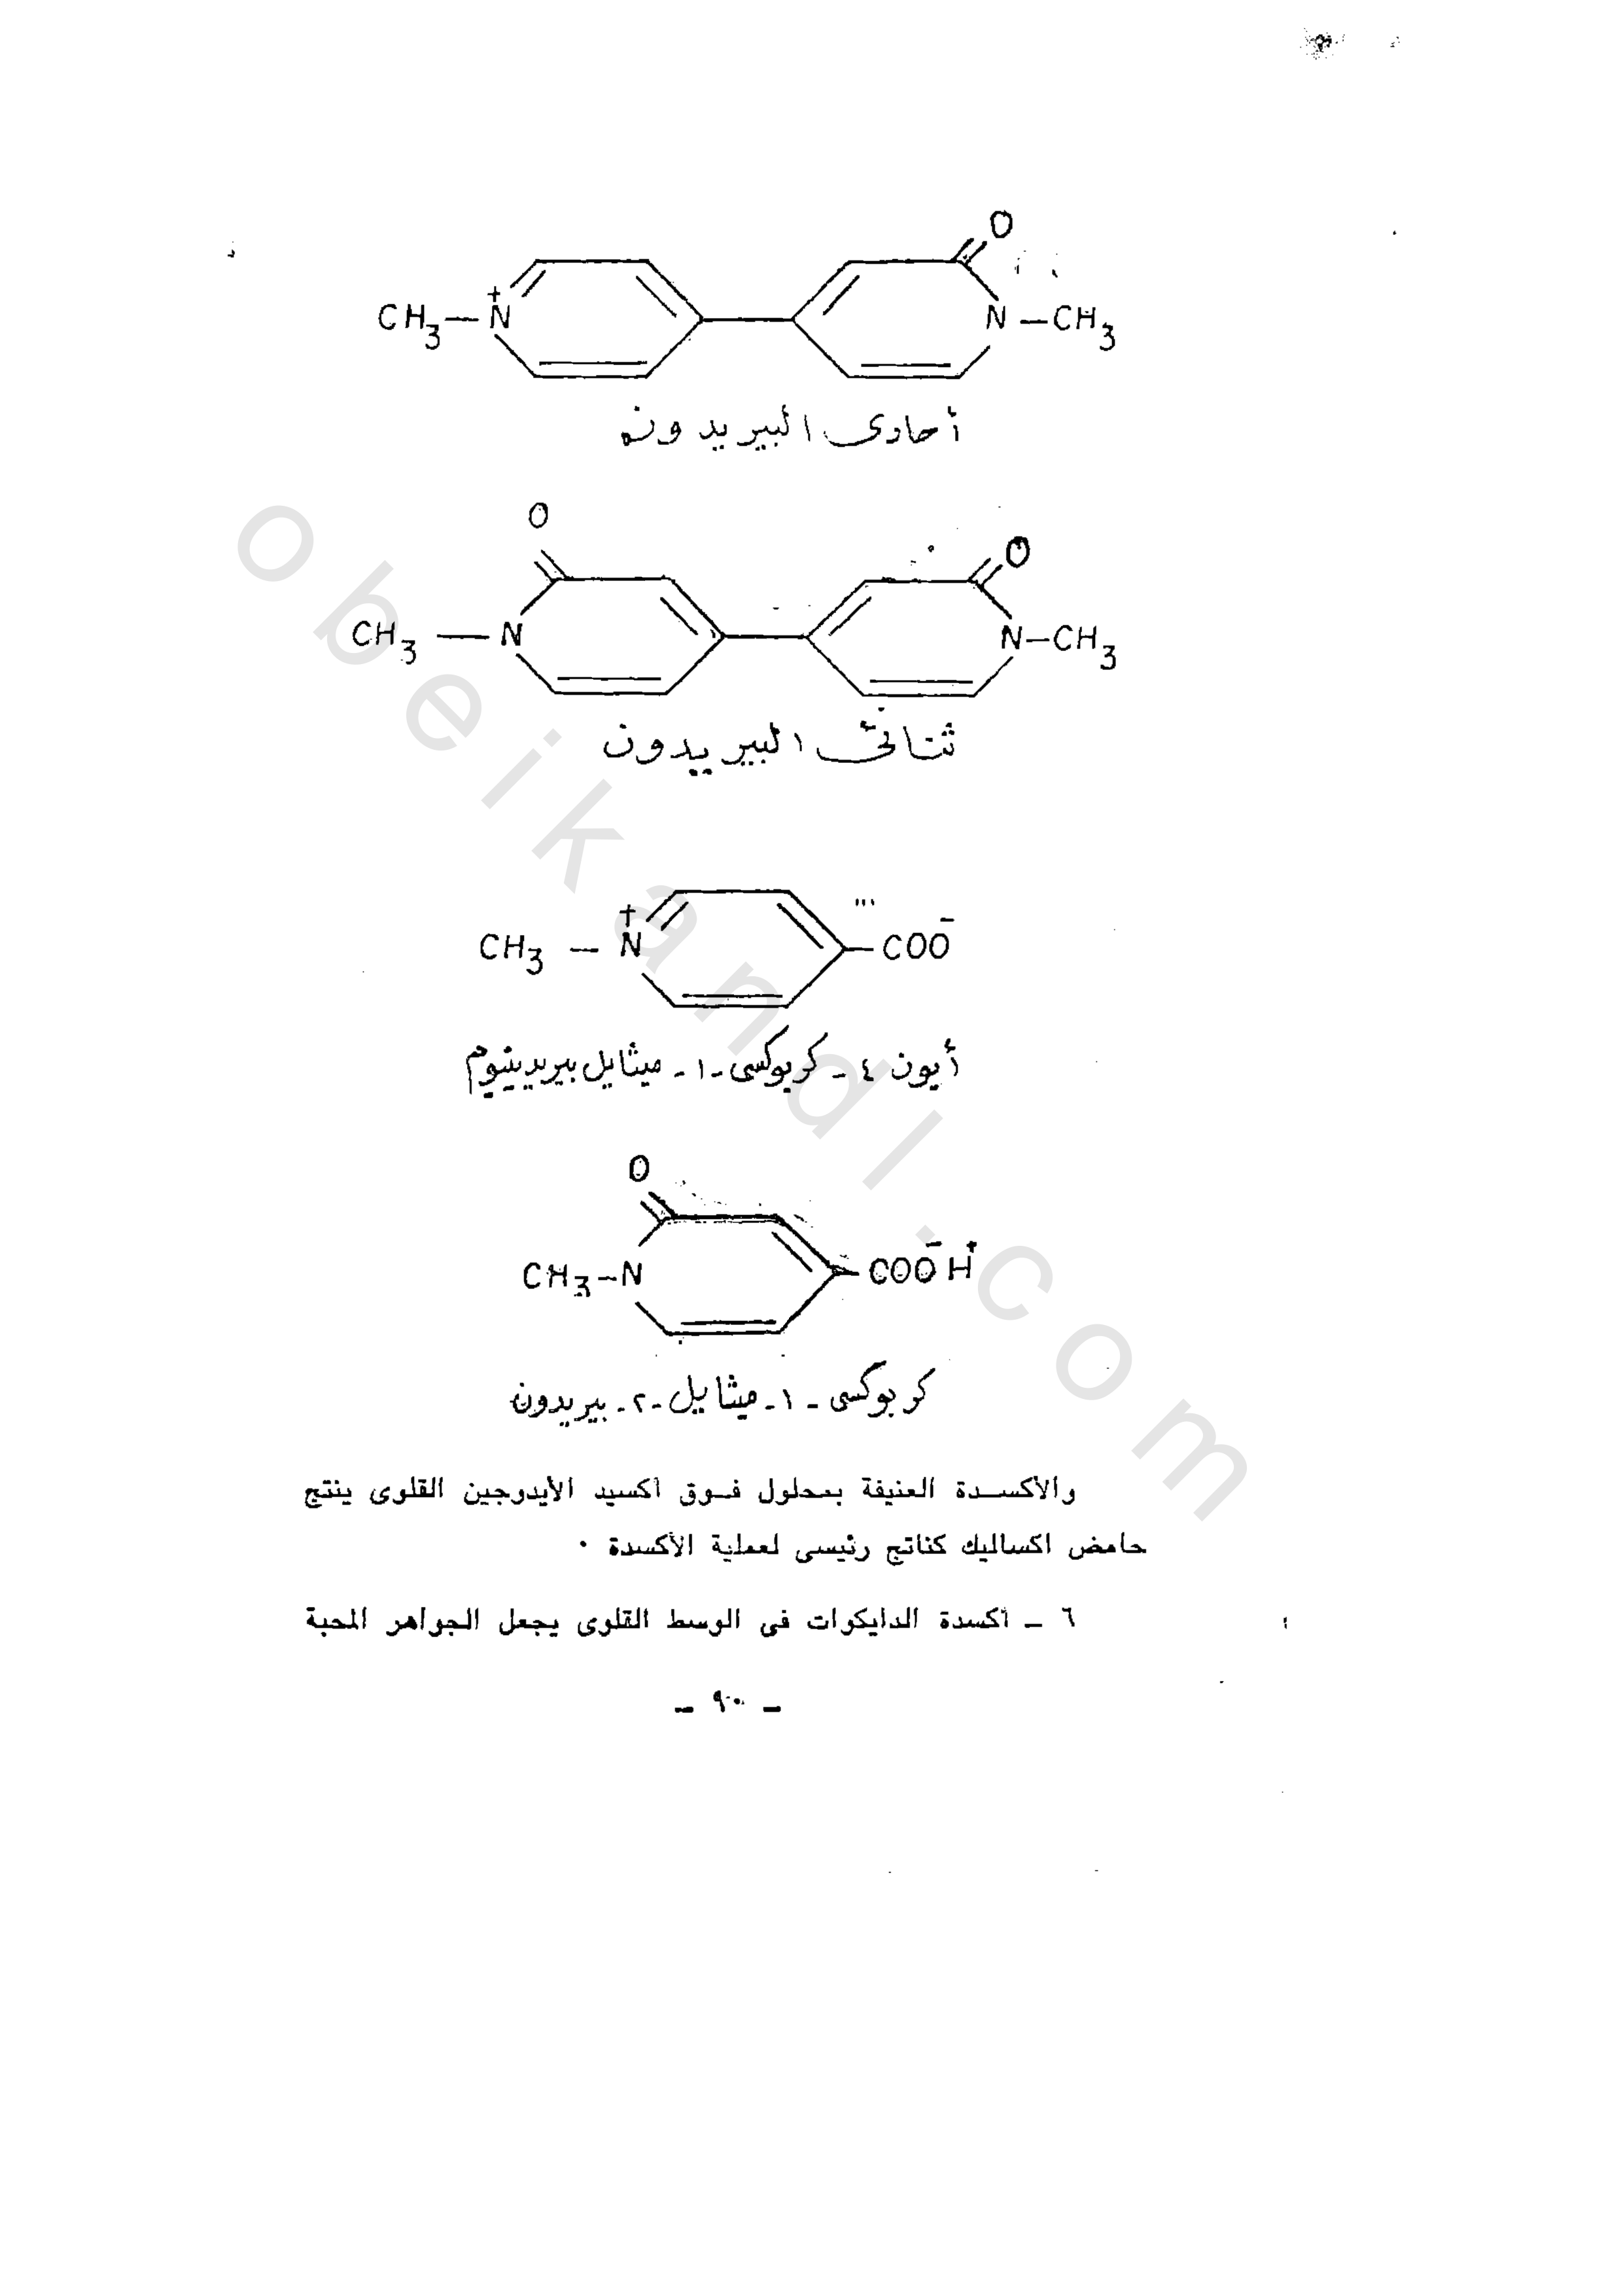 O
CH3 – N+ N – CH3
أحادى البيريدون
O O
CH3 — N N – CH3
ثنائى البيريدون
CH3 – N+ – COO-
أيون ٤ - كربوكسى - ١ - ميثايل بيريدينيوم
O
CH3 – N – COO- H+
كربوكسى - ١ - ميثايل - ٢ - بيريدون
والأكسدة العنيفة بمحلول فوق أكسيد الأيدروجين القلوى ينتج
حامض اكساليك كناتج رئيسى لعملية الأكسدة ٠
٦ ـ أكسدة الدايكوات فى الوسط القلوى يجعل الجواهر المحبة
ـ ٩٠ ـ
obeikandl.com